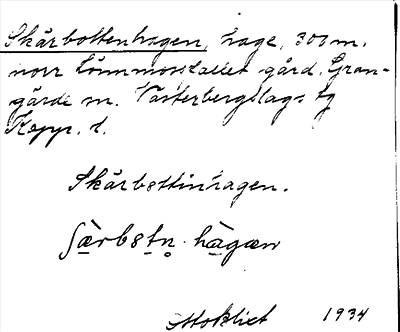 Skårbottenhagen, hage, 300 m.
norr Lömmosstallet gård. Gran-
gärde sn. Västerbergslags tg
Kopp. l.
Skårbottinhagen.
ʃæ̀rbɵtn̥ hàgæn
1934